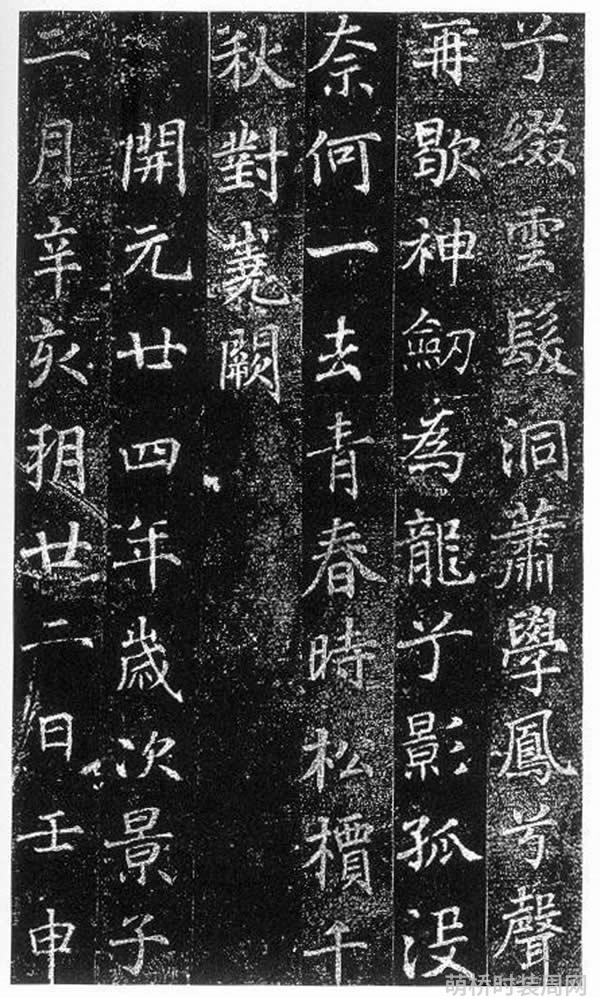 兮綴雲髮洞蕭學鳳兮聲
再歇神劒為龍兮影孤没
奈何一去青春時松檟千
秋對嶤闕
開元廿四年歲次景子
二月辛亥朔廿二日壬申
萌桥时装周网